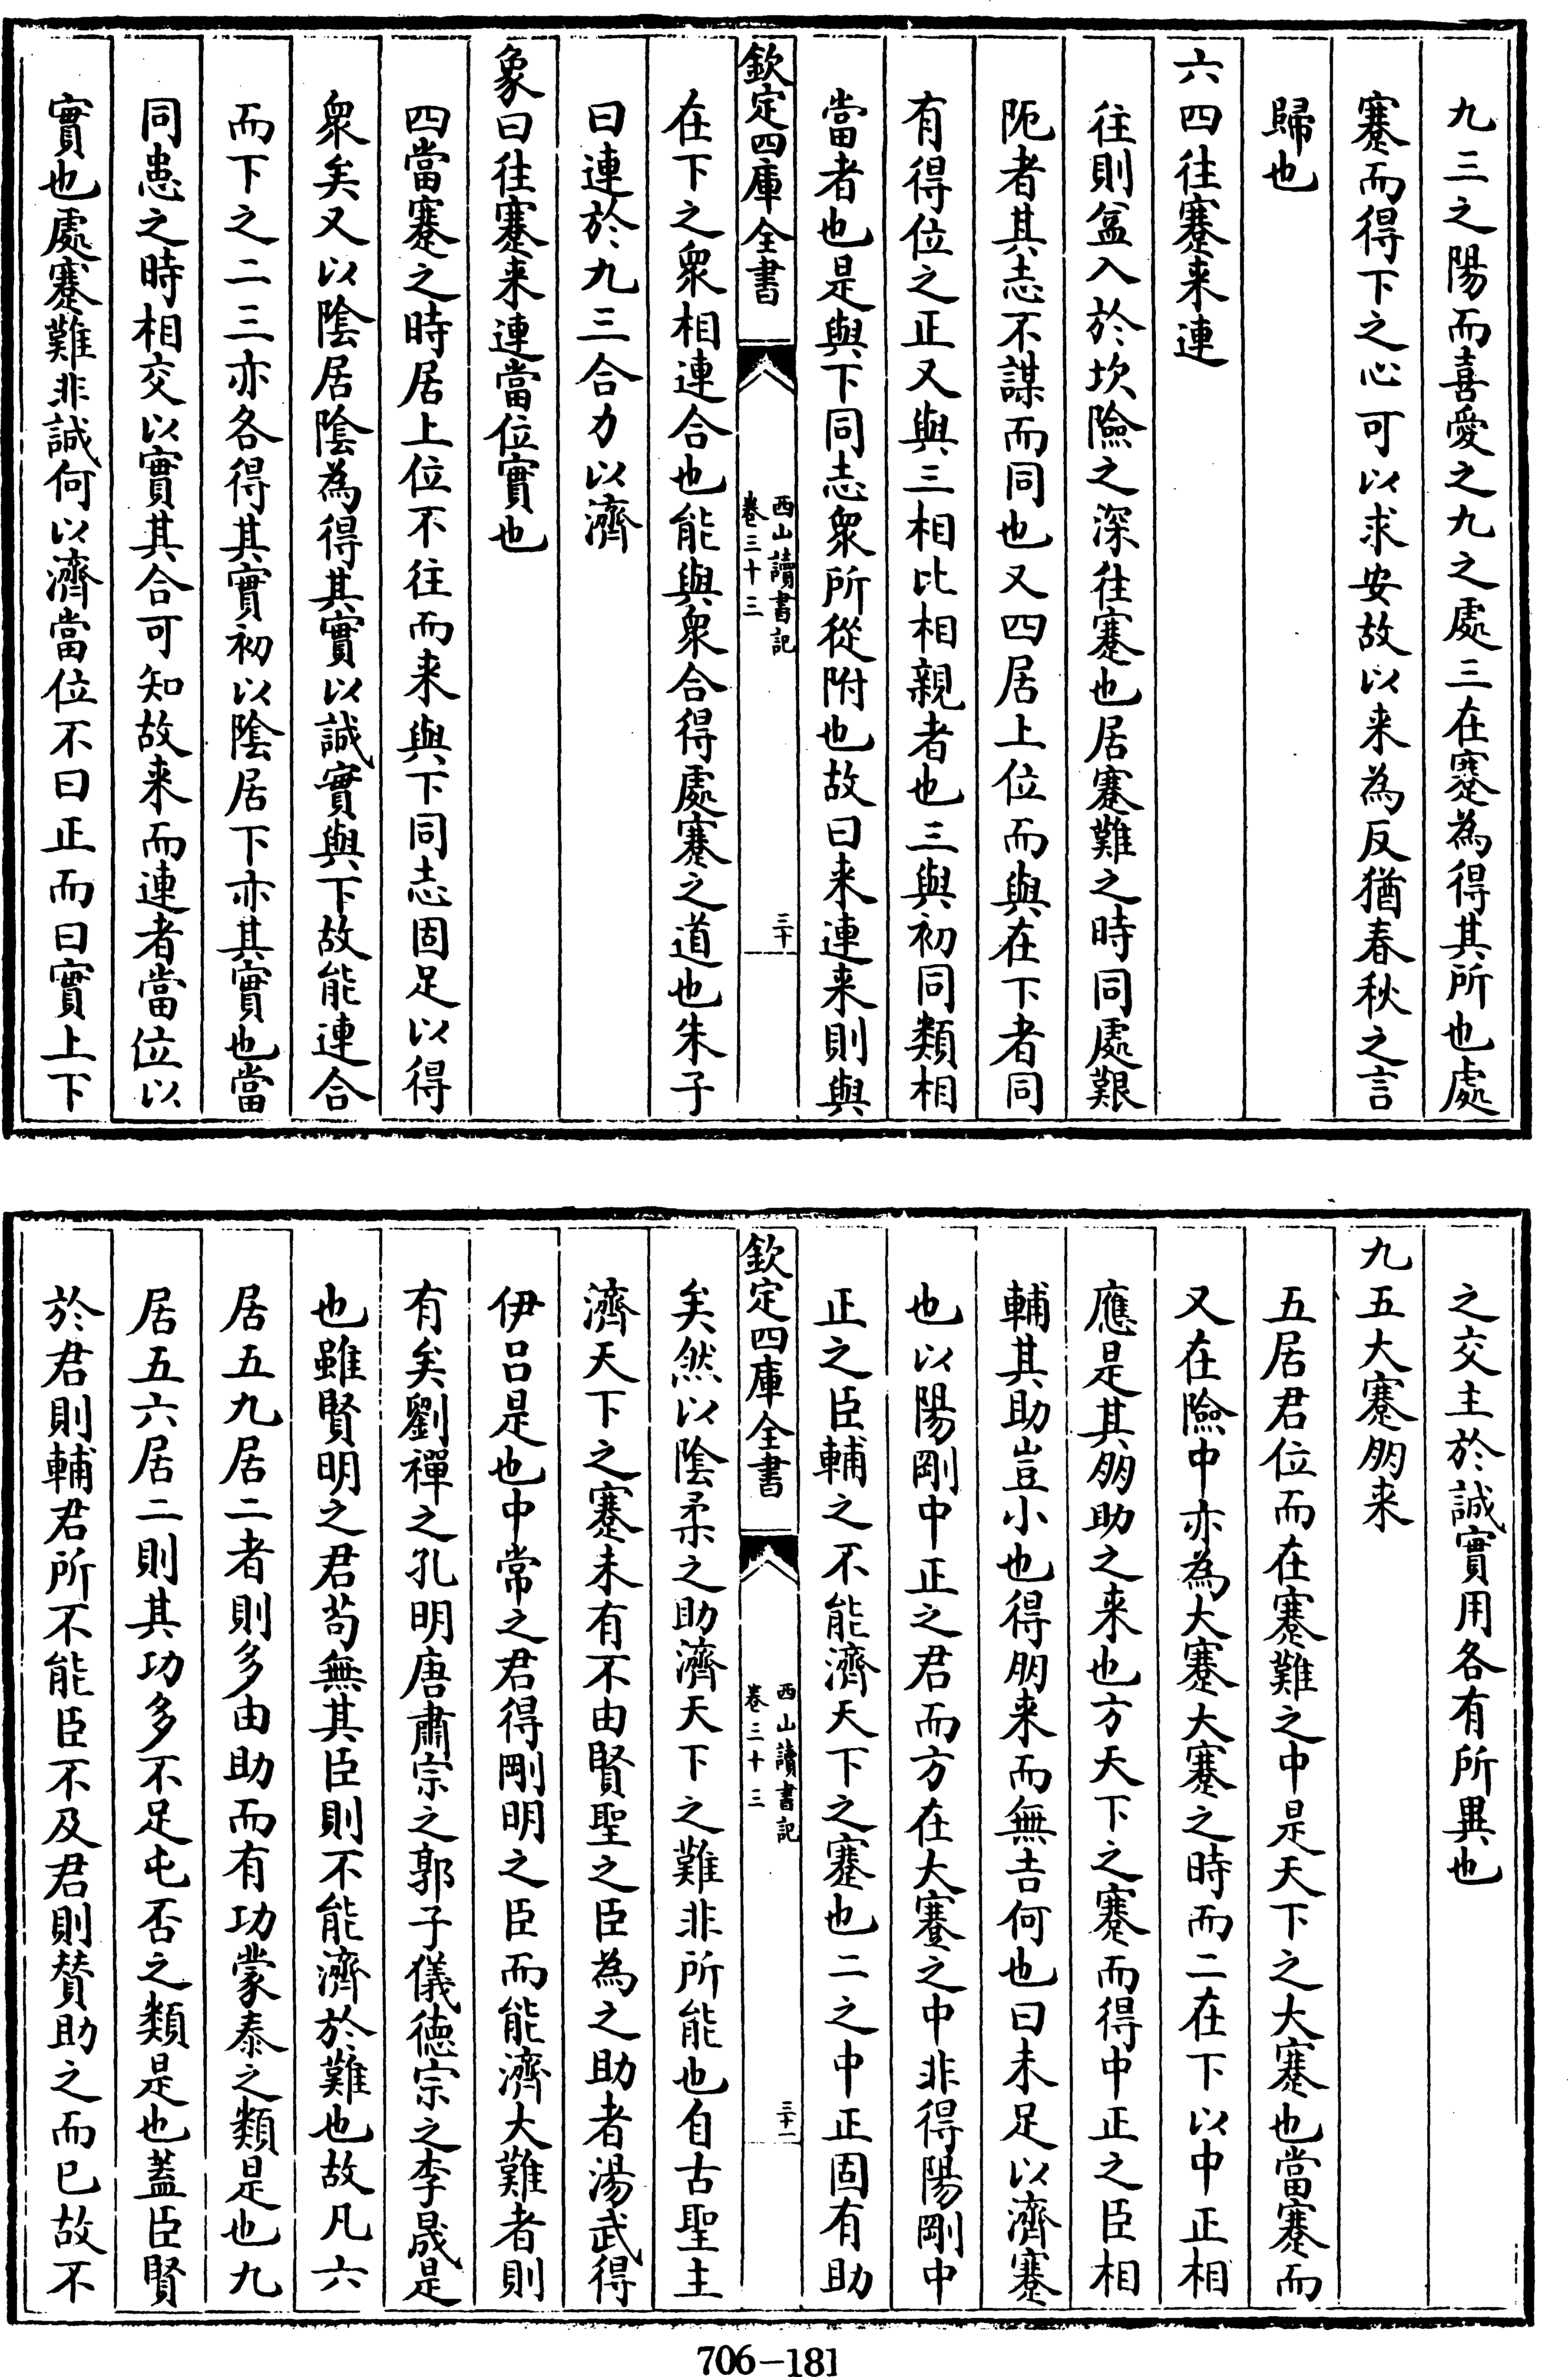 九三之陽而喜愛之九之處三在蹇為得其所也處
蹇而得下之心可以求安故以来為反猶春秋之言
歸也
六四往蹇来連
往則益入於坎險之深往蹇也居蹇難之時同處艱
阨者其志不謀而同也又四居上位而與在下者同
有得位之正又與三相比相親者也三與初同類相
當者也是與下同志衆所從附也故曰来連来則與
欽定四庫全書
西山讀書記
卷三十三
三十
在下之衆相連合也能與衆合得處蹇之道也朱子
曰連於九三合力以濟
象曰往蹇来連當位實也
四當蹇之時居上位不往而来與下同志固足以得
衆矣又以陰居陰為得其實以誠實與下故能連合
而下之二三亦各得其實初以陰居下亦其實也當
同患之時相交以實其合可知故来而連者當位以
實也處蹇難非誠何以濟當位不曰正而曰實上下
之交主於誠實用各有所異也
九五大蹇朋来
五居君位而在蹇難之中是天下之大蹇也當蹇而
又在險中亦為大蹇大蹇之時而二在下以中正相
應是其朋助之来也方天下之蹇而得中正之臣相
輔其助豈小也得朋来而無吉何也曰未足以濟蹇
也以陽剛中正之君而方在大蹇之中非得陽剛中
正之臣輔之不能濟天下之蹇也二之中正固有助
欽定四庫全書
西山讀書記
卷三十三
三十一
矣然以陰柔之助濟天下之難非所能也自古聖主
濟天下之蹇未有不由賢聖之臣為之助者湯武得
伊呂是也中常之君得剛明之臣而能濟大難者則
有矣劉禪之孔明唐肅宗之郭子儀德宗之李晟是
也雖賢明之君苟無其臣則不能濟於難也故凡六
居五九居二者則多由助而有功蒙泰之類是也九
居五六居二則其功多不足屯否之類是也蓋臣賢
於君則輔君所不能臣不及君則賛助之而已故不
706-181